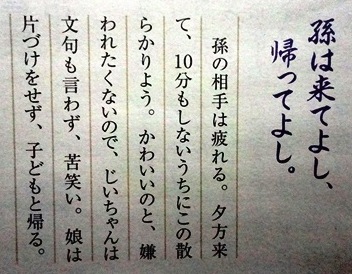 孫は来てよし、
帰ってよし。
孫の相手は疲れる。夕方来
て、10分もしないうちにこの散
らかりよう。かわいいのと、嫌
われたくないので、じいちゃんは
文句も言わず、苦笑い。娘は
片づけをせず、子どもと帰る。